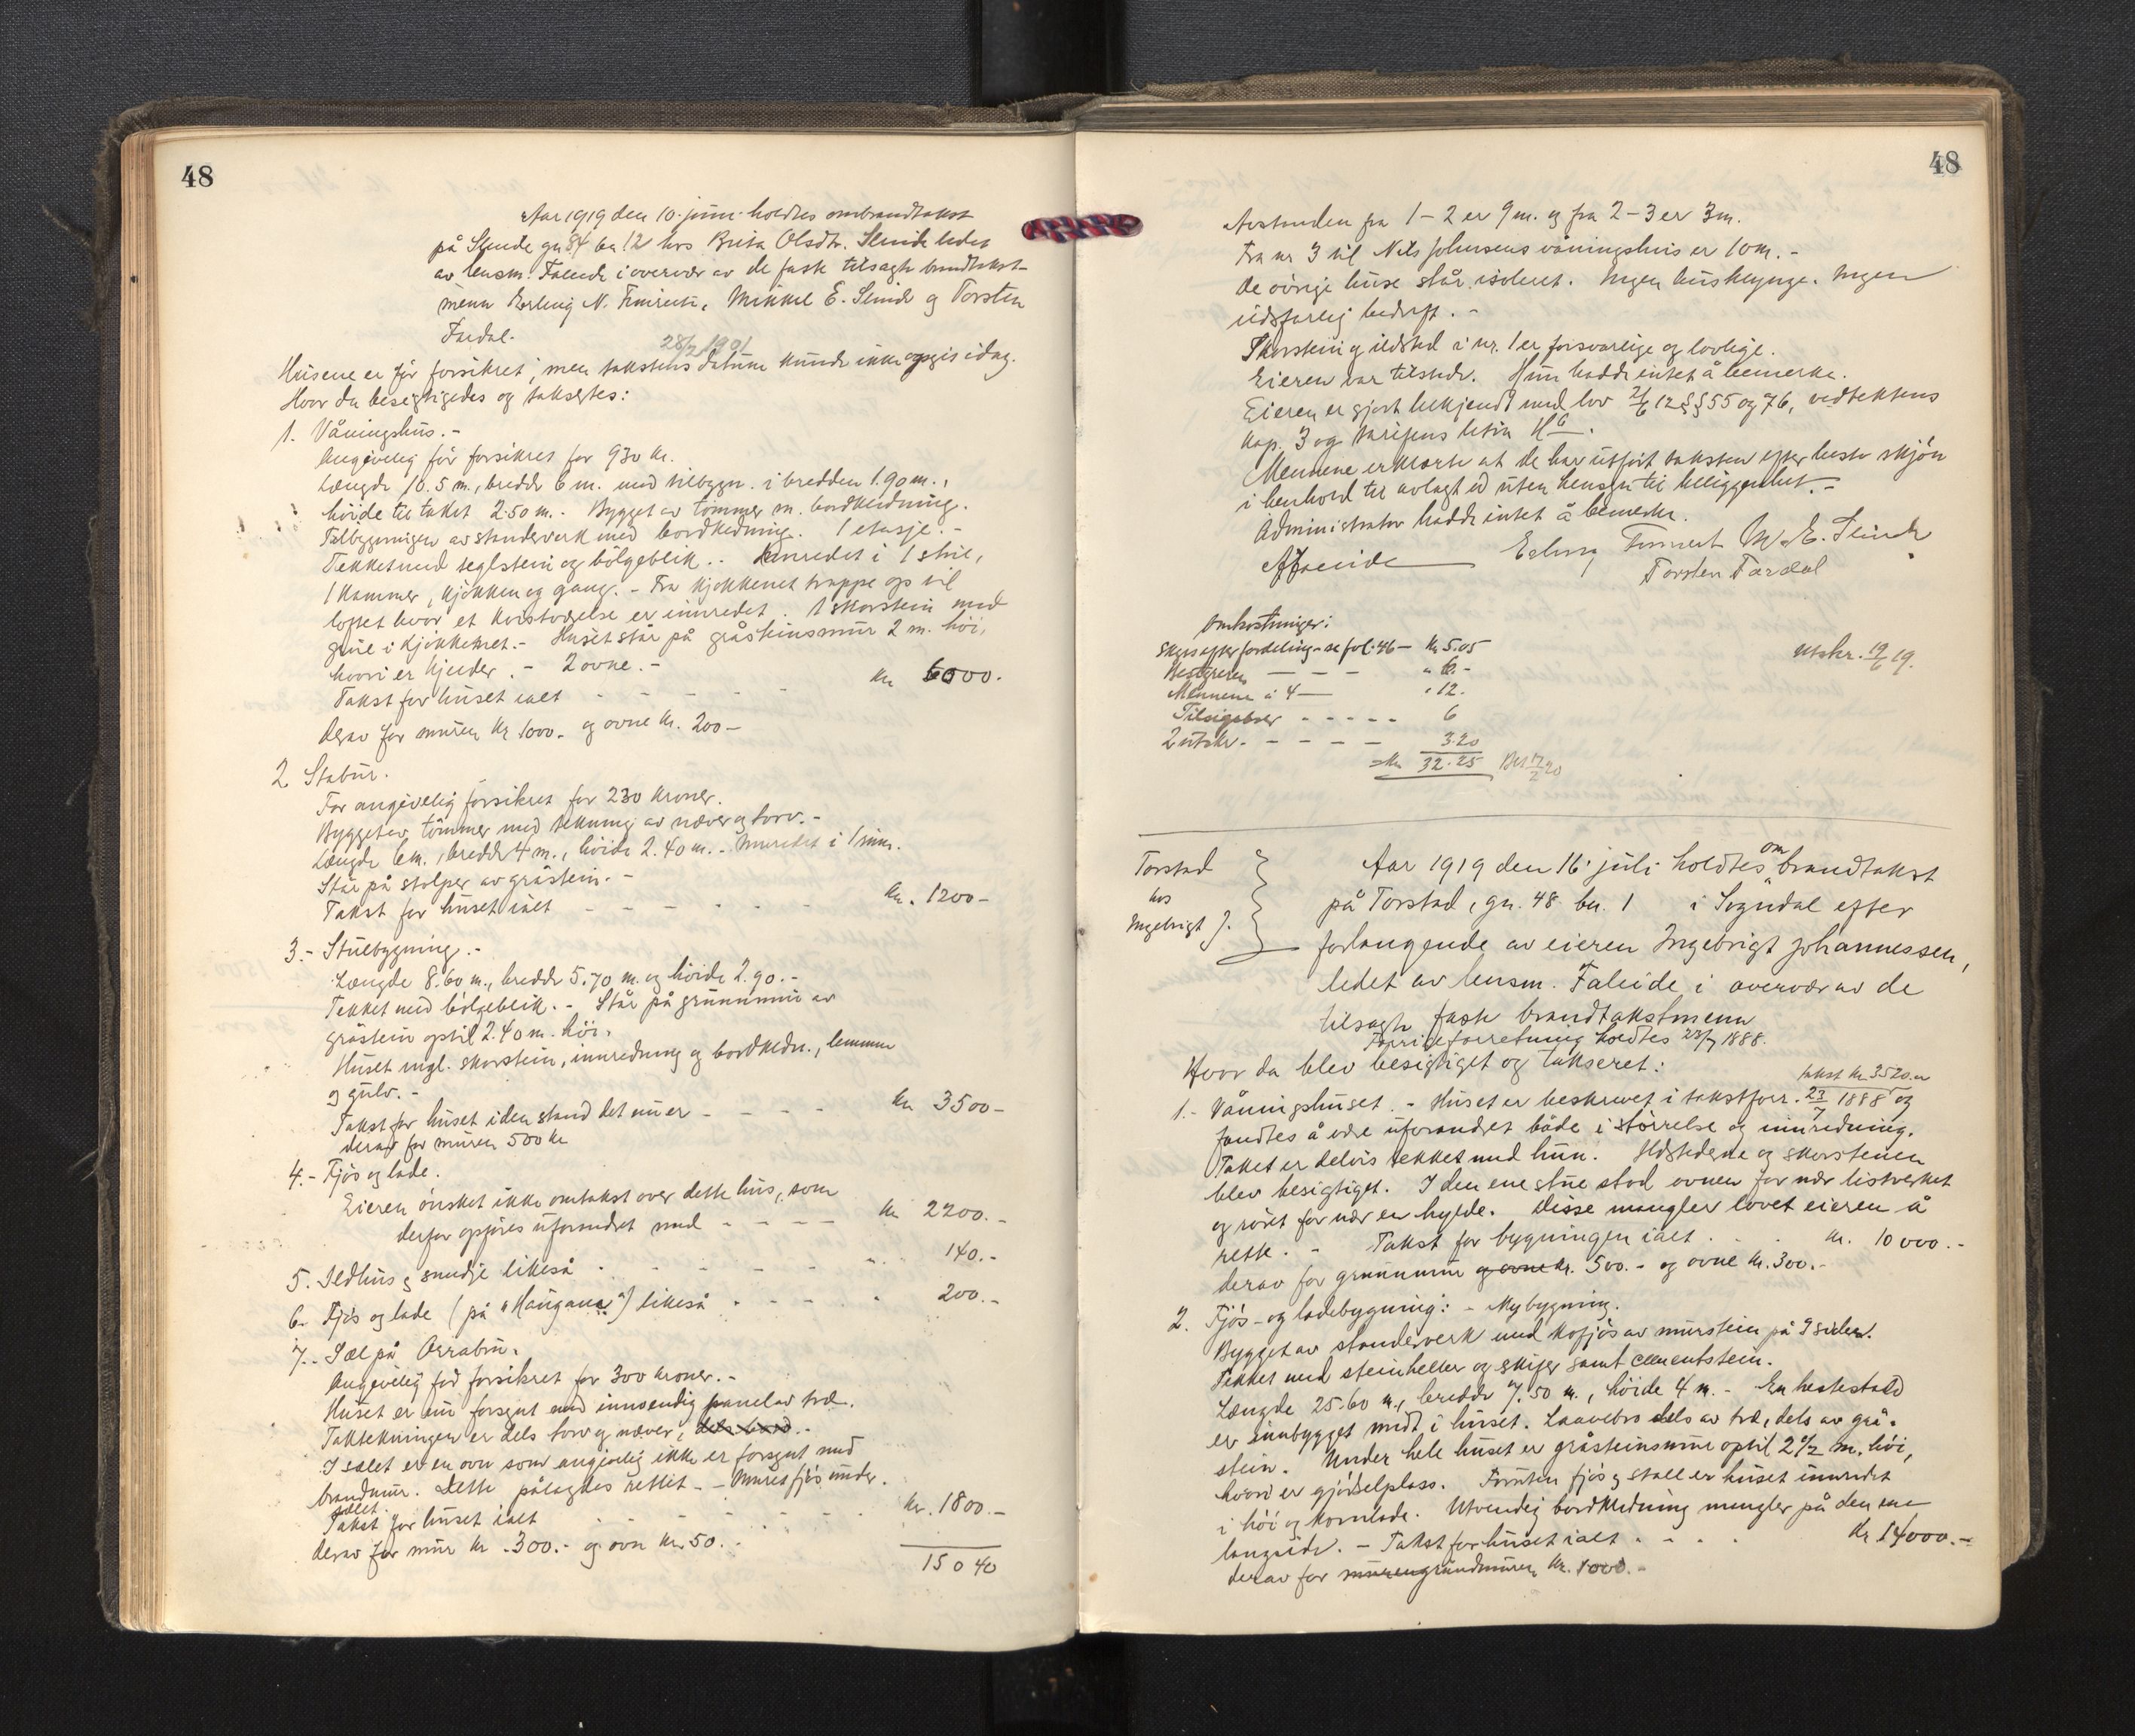 48
Aar 1919 den 10. juni holdtes ombrandtakst
på Slinde gn 84 bn 12 hos Brita Olsdtr. Slinde ledet
av lensm. Faleide i overvær av de faste tilsagte brandtakst-
menn Erling N. Fimreite, Mikkel E. Slinde og Torsten
Fardal.
28/2 1901
Husene er før forsikret, men takstens datum kunde ikke opgis idag.
Hvor da besigtigedes og taksertes:
1. Våningshus. -
Angivelig før forsikret for 930 kr.
Længde 10.5 m., bredde 6 m. med tilbygn. i bredden 1.90 m.,
höide til taket 2.50 m. - Bygget av tömmer m. bordklædning.
Tilbygningen av standerverk med bordkledning. 1 etasje. -
Tekket med teglstein og bölgeblik. . Innredet i 1 stue,
1 kammer, kjökken og gang. - Fra kjökkenet trappe op til
loftet hvor et kvistværelse er innredet. 1 skorstein med
grue i kjökkenet. - Huset står på gråsteinsmur 2 m. höi,
hvori er kjelder. - 2 ovne. -
Takst for huset ialt - - - - - kr 6000.
Derav for muren kr 1000.- og ovne kr. 200 -
2 Stabur.
Før angivelig forsikret for 230 kroner.
Bygget av tömmer med tekning av næver og torv. -
Længde 6 m., bredde 4 m., höide 2.40 m. - Innredet i 1 rum.
Står på stolper av gråstein. -
Takst for huset ialt - - - - - - kr. 1200 -
3. - Stuebygning. -
Længde 8.60 m., bredde 5.70 m. og höide 2.90. -
Tekket med bölgeblik. - Står på grunnmur av
gråstein optil 2.40 m. höi.
Huset mgl. skorstein, innredning og bordkledn., lemmer
og gulv. -
Takst for huset i den stand det nu er - - - - kr 3500 -
derav for muren 500 kr
4. - Fjös og lade.
Eieren önsket ikke omtakst over dette hus, som
derfor opföres uforandret med - - - - kr 2200. -
5. Ildhus og smedje likeså - - - - - - 140. -
6. Fjös og lade (på "Haugane") likeså - - - - 200. -
7. - Sæl på Orrabu.
Angivelig før forsikret for 300 kroner. -
Huset er nu forsynt med innvendig panel av træ.
Taktekningen er dels torv og næver, dels bord. -
I sælet er en ovn som angivelig ikke er forsynt med
brandmur. Dette pålagdes rettet. - - Muret fjös under
sælet.
Takst for huset ialt - - - - - - kr. 1800. -
derav for mur kr 300. - og ovn kr. 50. -
15040
48
Avstanden fra 1 - 2 er 9 m. og fra 2 - 3 er 3 m.
Fra nr 3 til Nils Johnsens våningshus er 10 m. -
De övrige huse står isoleret. Ingen husklynge. Ingen
ildsfarlig bedrift. -
Skorstein og ildsted i nr. 1 er forsvarlige og lovlige.
Eieren var tilstede. Hun hadde intet å bemerke.
Eieren er gjort bekjendt med lov 21/6 12 §§ 55 og 76, vedtektens
kap. 3 og tarifens litra H 6.
Mennene erklærte at de har utfört taksten efter beste skjön
i henhold til avlagt ed uten hensyn til beliggenhet. -
Administrator hadde intet å bemerke.
AFaleide Erling Fimreit M. E. Slinde
Torsten Fardal
Omkostninger:
Skyss efter fordeling - se fol. 46 - Kr 5.05
Bestyreren - - - " 6. -
Mennene à 4 - " 12.
Tilsigelser - - - - - 6
2 utskr. - - - - - 3.20
= Kr 32.25 Bet 17/2 20
Utskr. 19/6 19.
Torstad
hos
Ingebrigt J.
Aar 1919 den 16. juli holdtes ombrandtakst
på Torstad, gn. 48 bn. 1 i Sogndal efter
forlangende av eieren Ingebrigt Johannessen,
ledet av lensm. Faleide i overvær av de
tilsagte faste brandtakstmenn
Forrige forretning holdtes 23/7 1888.
Hvor da blev besigtiget og taksert:
takst kr. 3520.-
1. - Våningshuset. - Huset er beskrevet i takstforr. 23/7 1888 og
fandtes å være uforandret både i störrelse og innredning.
Taket er delvis tekket med hun. Ildstederne og skorsteinen
blev besigtiget. I den ene stue stod ovnen for nær listverket
og röret for nær en hylde. Disse mangler lovet eieren å
rette. - Takst for bygningen ialt . . kr. 10000. -
derav for grunnmur og ovne kr. 500. - og ovne kr. 300. -
2. Fjös- og ladebygning: - Nybygning.
Bygget av standerverk med kofjös av murstein på 3 sider.
Tekket med steinheller og skifer samt cementstein.
Længde 25.60 m., bredde 7.50 m., höide 4 m. - En hestestald
er innbygget midt i huset. Laavebro dels av træ, dels av grå-
stein. Under hele huset er gråsteinsmur optil 2 1/2 m. höi,
hvori er gjödselplass. Foruten fjös og stall er huset innredet
i höi og kornlade. Utvendig bordkledning mangler på den ene
langside. - Takst for huset ialt . - . . kr. 14000. -
derav for muren grundmuren kr. 1000. -